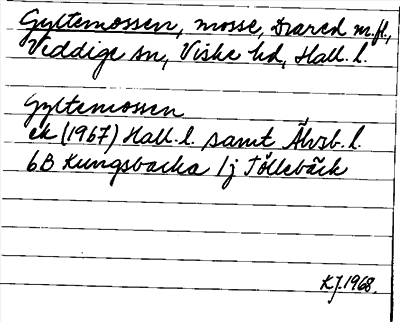 Gyltemossen, mosse, Drared m.fl.,
Veddige sn, Viske hd, Hall. l.
Gyltemossen
ek (1967) Hall. l. samt Älvsb. l.
6B Kungsbacka 1j Töllebäck
KJ.1968.